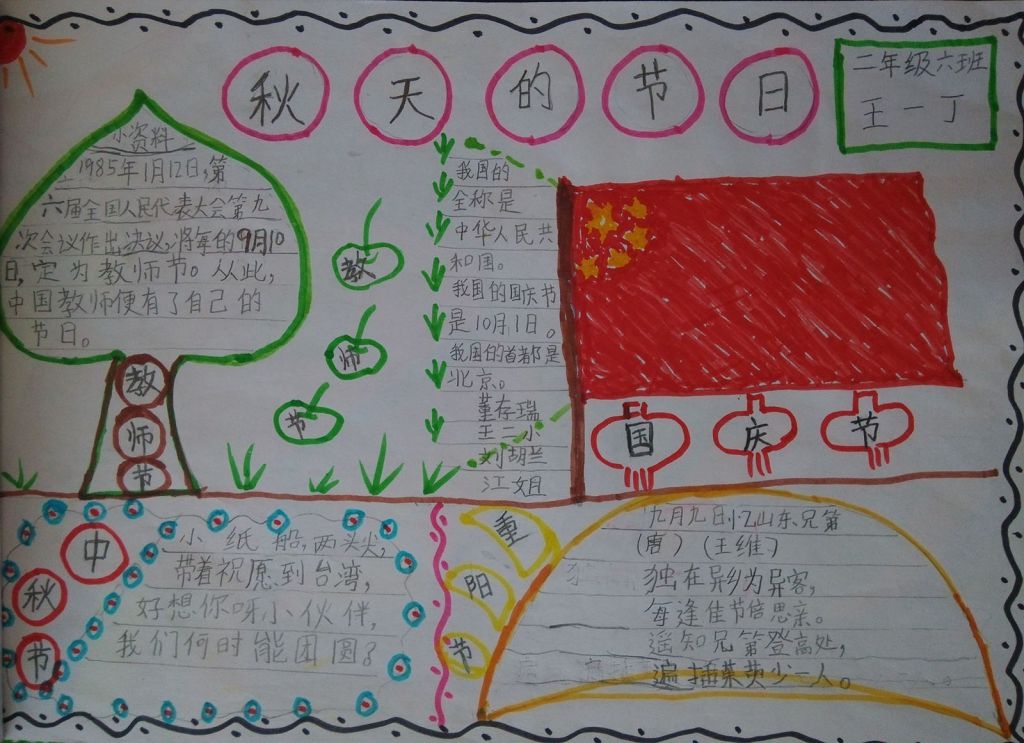 秋天的节日
二年级六班
王一丁
小资料
1985年1月12日,第
六届全国人民代表大会第九
次会议作出决议,将每的9月10
日,定为教师节。从此,
中国教师便有了自己的
节日。
教
师
节
教
师
节
我国的
全称是
中华人民共
和国。
我国的国庆节
是10月1日。
我国的首都是
北京。
董存瑞
王二小
刘胡兰
江姐
国
庆
节
中
秋
节
小纸船,两头尖,
带着祝愿到台湾,
好想你呀小伙伴,
我们何时能团圆?
重
阳
节
九月九日忆山东兄弟
(唐) (王维)
独在异乡为异客,
每逢佳节倍思亲。
遥知兄弟登高处,
遍插茱萸少一人。